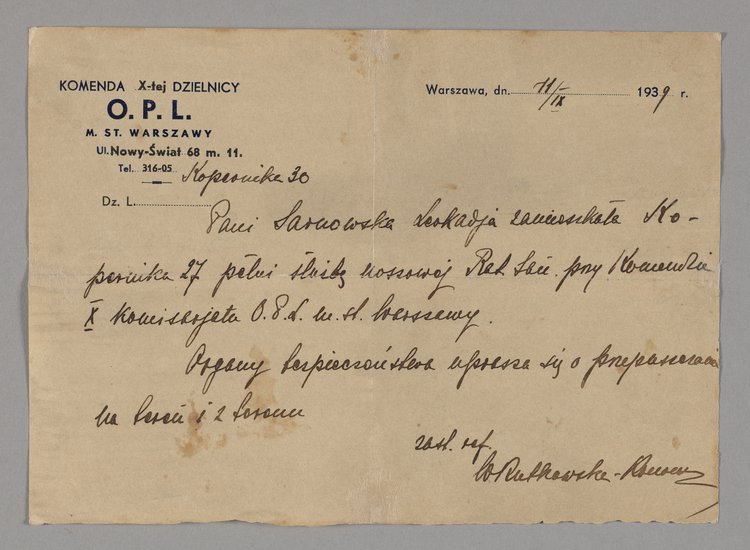 KOMENDA X-tej DZIELNICY
O. P. L.
M. ST. WARSZAWY
Ul. Nowy-Świat 68 m. 11.
Tel. 316-05
Kopernika 30
Dz. L.
Warszawa, dn. 11/IX 1939 r.
Pani Sarnowska Leokadja zamieszkała Ko-
pernika 27 pełni służbę noszowej Rat. San. przy Komendzie
X Komisarjatu O.P.L. m. st. Warszawy.
Organy bezpieczeństwa uprasza się o przepuszczanie
na teren i z terenu
zast. ref.
W Rutkowska-